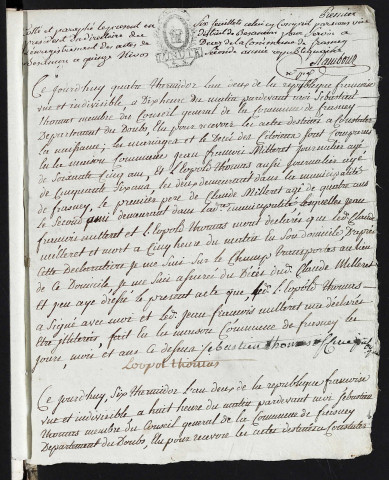 premier
Cotté et paraphé le present en
Six feuillets celui cy Compris par nous
president du directoire du
district de Besançon pour servir a
l'enregistrement des actes de
Deces de la Commune de franey
Seconde année republicaine
Ce jourdhuy quatre thermidor lan deux de la republique françoise
une et indivisible, a dix heure du matin pardevant moi Sebastien
thomas membre du Conseil general de la Commune de fresney
Departement du Doubs, Elu pour recevoir les actes destinés a Constater
la naissance, les mariages et le Décès des Citoiens sont Comparus
en la maison Commune jean françois Milleret journalier agé
de Soixante Cinq ans, et Léopold thomas aussi journalier agé
de Cinquante ans, les deux demeurant dans la municipalité
de fresney, le premier pere de Claude Milleret agé de quatre ans
le Second ami demeurant dans lad. municipalité lesquelles jean
françois milleret et Léopold thomas mont déclarés que led. Claude
milleret est mort a Cinq heure du matin en Son domicile. Dapres
Cette Declaration je me Suis Sur le Champ transportés au lieu
de Ce domicile, je me Suis assurés du Décès dud. Claude Milleret
et jen ay dressé le present acte que led. Léopold thomas
a Signé avec moi et led. jean françois milleret ma déclarés
être illeteré, fait en la maison Commune de fresney les
jour, mois et ans cy dessus Sebastien thomas
Leopol thomas
Ce jourdhuy, Six thermidor lan deux de la republique françoise
une et indivisible a huit heure du matin pardevant moi Sebastien
thomas membre du Conseil general de la Commune de fresney
Departement du Doubs, Elu pour recevoir les actes destinés a Constater